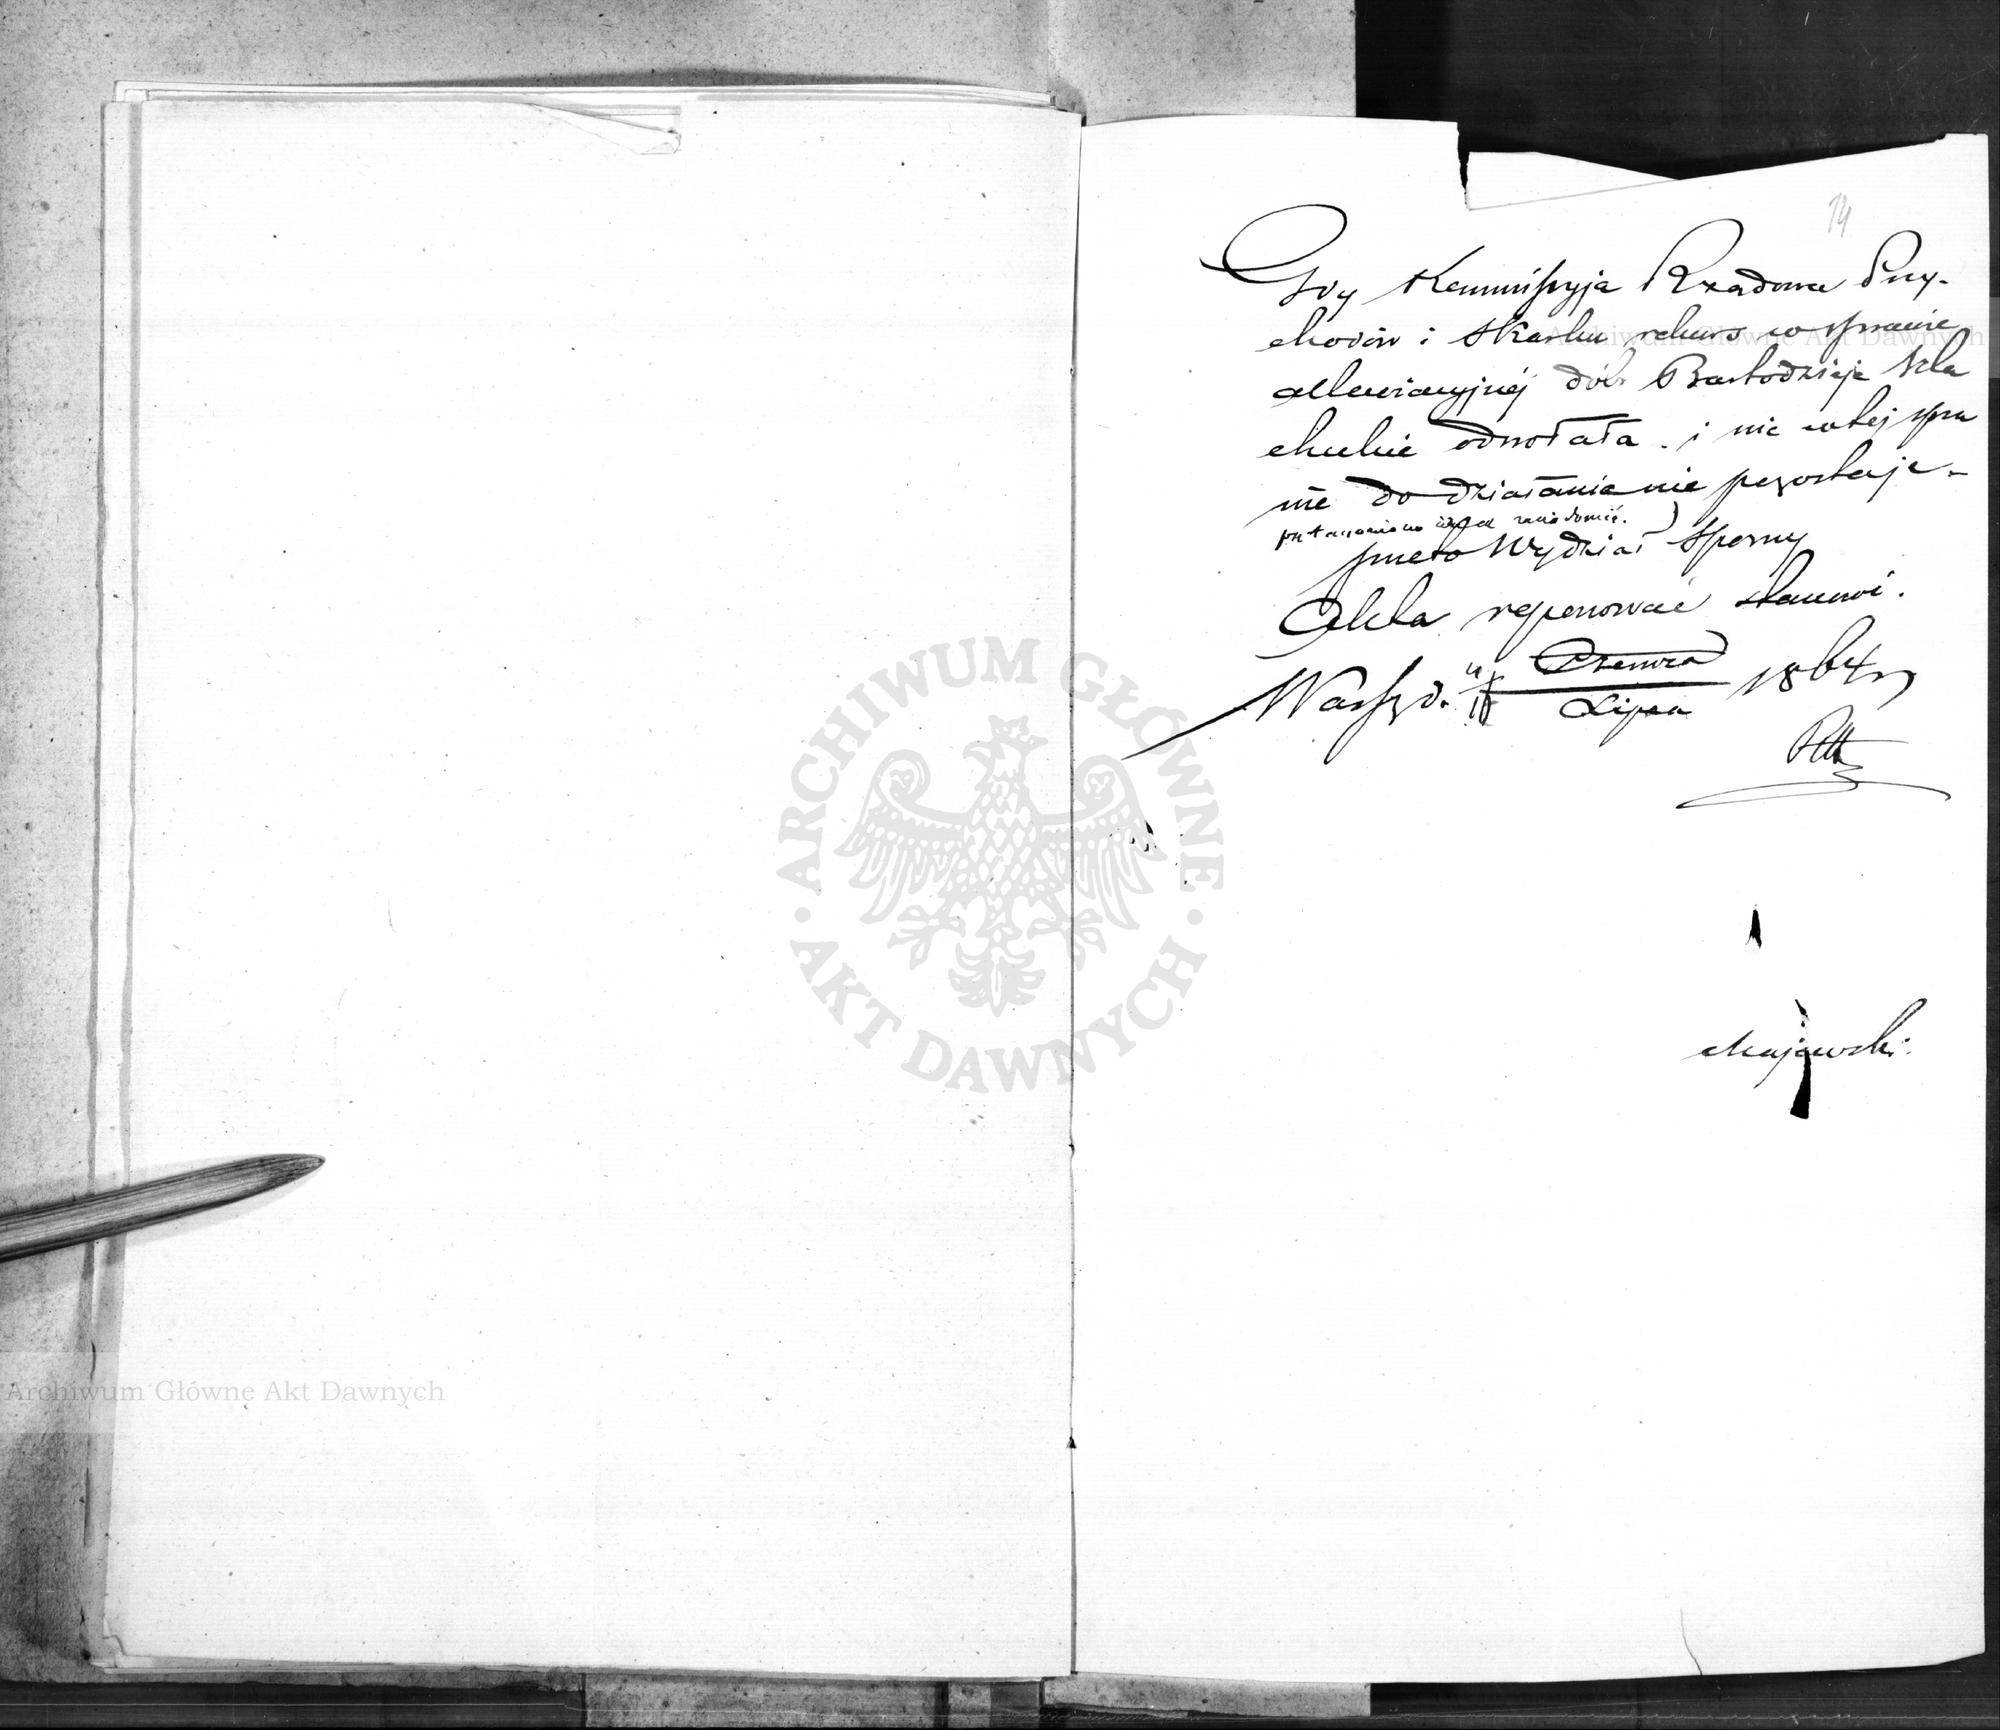 14
Gdy Kommissyja Rządowa Przy-
chodów i Skarbu, rekurs w sprawie
allewiacyjnéj dóbr Bartodzieje Szla
checkie odwołała. i nic w tej spra
wie do działania nie pozostaje -
postanowiono zawiadomić.
przeto Wydział Sporny
Akta reponować stanowi.
Warsz d. Czerwca 1864 r
Lipca
Majewski.
ARCHIWUM GŁÓWNE
AKT DAWNYCH
Archiwum Główne Akt Dawnych
Archiwum Główne Akt Dawnych